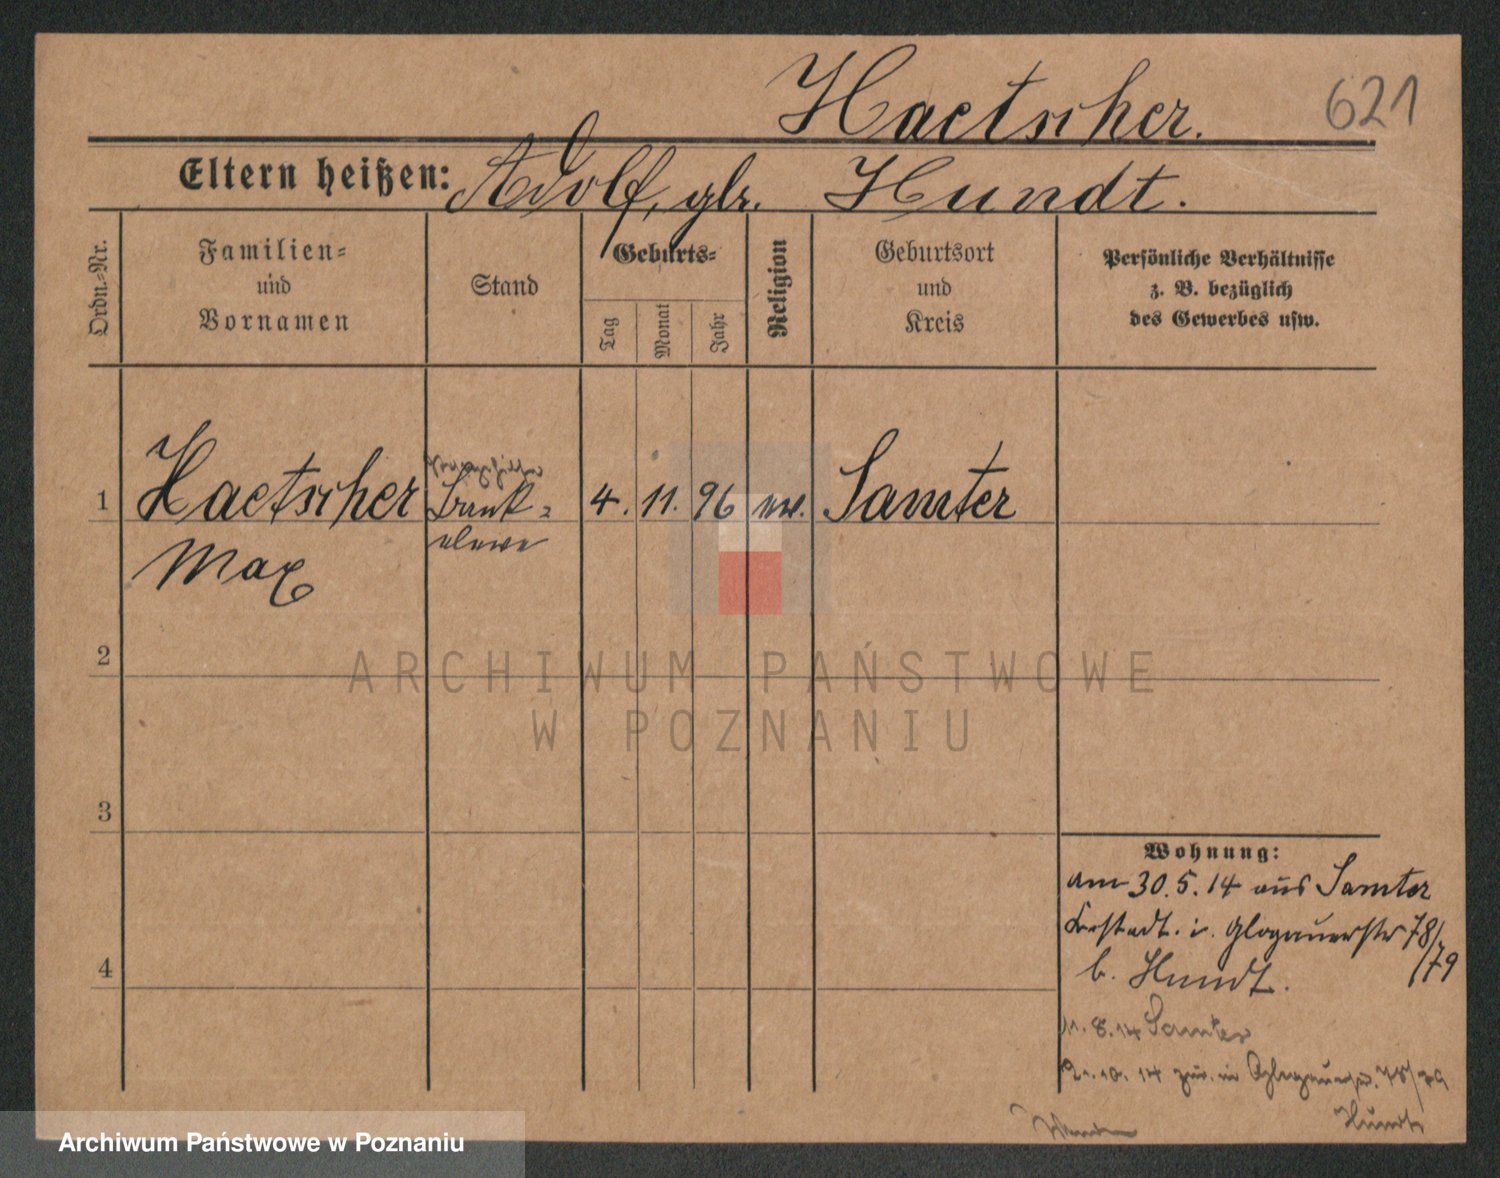 Haetscher.
621
Eltern heißen: Adolf, glr. Hundt.
Ordn.-Nr.
Familien-
und
Vornamen
Stand
Geburts-
Tag
Monat
Jahr
Religion
Geburtsort
und
Kreis
Persönliche Verhältnisse
z. B. bezüglich
des Gewerbes usw.
1
Haetscher
Max
Bank-
eleve
4. 11. 96
Samter
2
3
4
Wohnung:
am 30.5.14 aus Samter
Glogauerstr 78/
/79
b. Hundt.
8.14 Samter
10. 14 zur. in 78/79
Hundt
ARCHIWUM PAŃSTWOWE
W POZNANIU
Archiwum Państwowe w Poznaniu